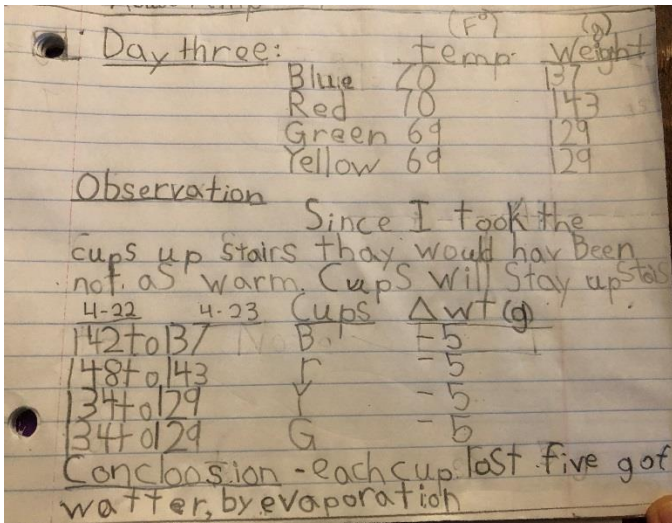 (F°) (g)
Day three: temp. weight
Blue 70 137
Red 70 143
Green 69 129
Yellow 69 129
Observation
Since I took the
cups up stairs thay would hav Been
not as warm. Cups will Stay upstairs
4-22 4-23 Cups Δ wt (g)
142 to 137 B -5
148 to 143 r -5
134 to 129 Y -5
134 to 129 G -5
Concloosion - each cup lost five g of
watter, by evaporation